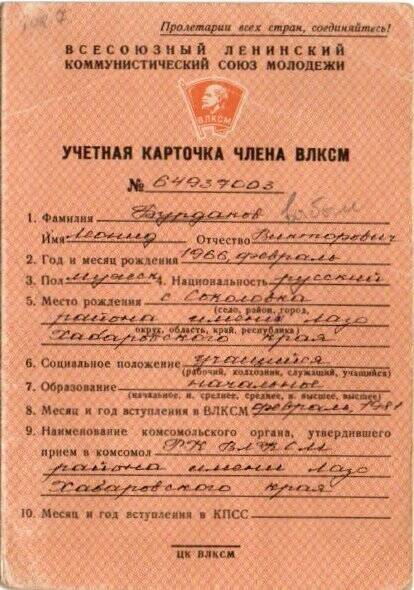 Пролетарии всех стран, соединяйтесь!
ВСЕСОЮЗНЫЙ ЛЕНИНСКИЙ
КОММУНИСТИЧЕСКИЙ СОЮЗ МОЛОДЕЖИ
ВЛКСМ
УЧЕТНАЯ КАРТОЧКА ЧЛЕНА ВЛКСМ
№ 64937003
1. Фамилия Бурдаков
Имя Леонид Отчество Викторович
2. Год и месяц рождения 1966, февраль
3. Пол мужск 4. Национальность русский
5. Место рождения с. Соколовка
(село, район, город,
района имени Лазо
округ, область, край, республика)
Хабаровского края
6. Социальное положение учащийся
(рабочий, колхозник, служащий, учащийся)
7. Образование начальное
(начальное, н. среднее, среднее, н. высшее, высшее)
8. Месяц и год вступления в ВЛКСМ февраль, 1981
9. Наименование комсомольского органа, утвердившего
прием в комсомол РК ВЛКСМ
района имени Лазо
Хабаровского края
10. Месяц и год вступления в КПСС
ЦК ВЛКСМ